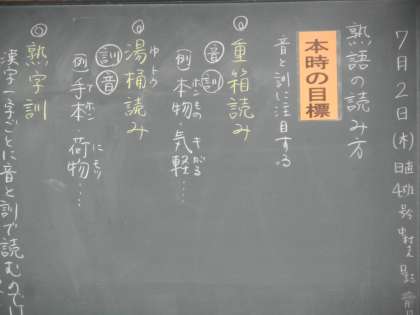 7月2日(木) 日直
熟語の読み方
本時の目標
音と訓に注目する
◎重箱読み
音訓
例 本物 気軽……
ホンもの キがる
◎湯桶読み
ゆトウ
訓音
例 手本・荷物……
てホン にモツ
◎熟字訓
漢字一字ごとに音と訓で読むのでは